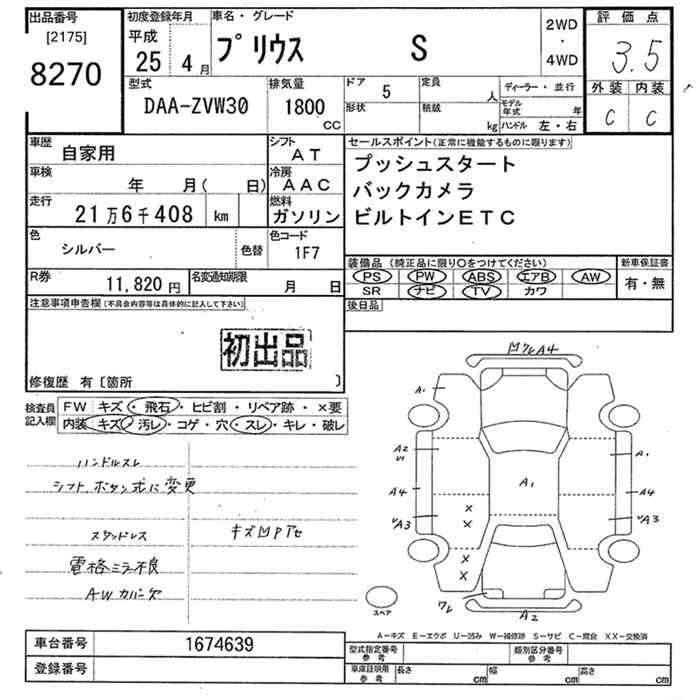 出品番号
[2175]
8270
初度登録年月
平成
25年 4月
車名・グレード
プリウス S
2WD
・
4WD
評価点
3.5
外装 内装
C C
型式
DAA-ZVW30
排気量
1800
CC
ドア 5
定員 人
形状
積載 kg
ディーラー・並行
モデル年式 年
ハンドル 左・右
車歴
自家用
シフト
AT
車検
年 月( 日)
冷房
AAC
走行
21万6千408 km
燃料
ガソリン
色
シルバー
色替
色コード
1F7
R券
11,820 円
名変通知期限
月 日
セールスポイント(正常に機能するものに限ります)
プッシュスタート
バックカメラ
ビルトインETC
装備品 (純正品に限り○をつけてください)
PS PW ABS エアB AW
SR ナビ TV カワ
新車保証書
有・無
後日品
注意事項申告欄 (不具合内容等は具体的に記入して下さい)
初出品
修復歴 有〔箇所 〕
検査員
記入欄
FW キズ・飛石・ヒビ割・リペア跡・×要
内装 キズ・汚レ・コゲ・穴・スレ・キレ・破レ
ハンドルスレ
シフトボタン式に変更
スタッドレス
キズ凹P下セ
電格ミラー不良
AWカバー欠
凹ワレA4
A1
A2
U1
A4
A3
A1
A1
A4
A3
× × × ×
ワレ
A2
スペア
A-キズ E-エクボ U-凹み W-補修跡 S-サビ C-腐食 XX-交換済
車台番号
1674639
登録番号
型式指定番号
参考
類別区分番号
参考
車庫証明用
参考
長さ cm
幅 cm
高さ cm